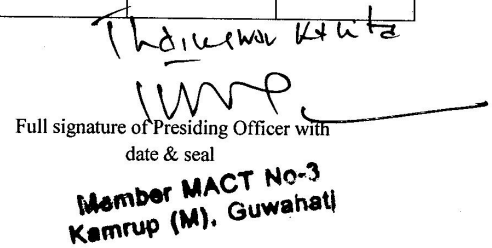 Kalita
Full signature of Presiding Officer with
date & seal
Member MACT No-3
Kamrup (M), Guwahati